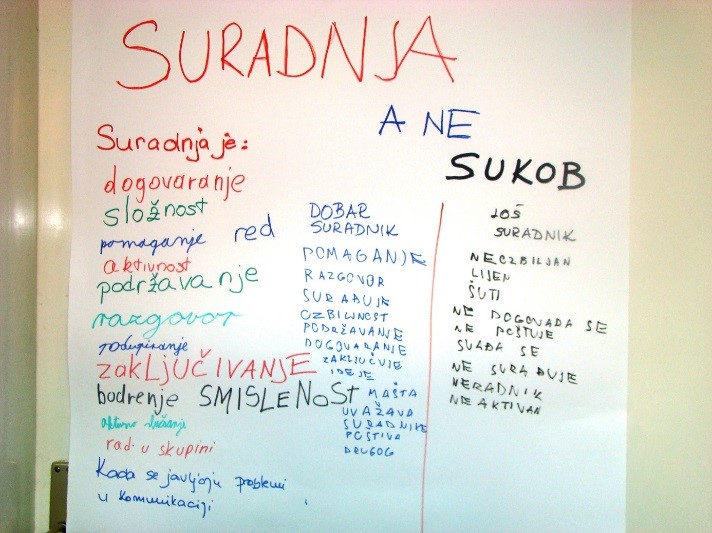 SURADNJA
A NE
SUKOB
Suradnja je:
dogovaranje
složnost
pomaganje red
aktivnost
podržavanje
razgovor
zaključivanje
bodrenje SMISLENOST
aktivno slušanje
rad u skupini
Kada se javljaju problemi
u komunikaciji
DOBAR
SURADNIK
POMAGANJE
RAZGOVOR
SURAĐUJE
OZBILJNOST
PODRŽAVANJE
DOGOVARANJE
ZAKLJUČUJE
IDEJE
MAŠTA
UVAŽAVA
SURADNIKE
POŠTIVA
DRUGOG
LOŠ
SURADNIK
NEOZBILJAN
LIJEN
ŠUTI
NE DOGOVARA SE
NE POŠTUJE
SVAĐA SE
NE SURAĐUJE
NERADNIK
NEAKTIVAN